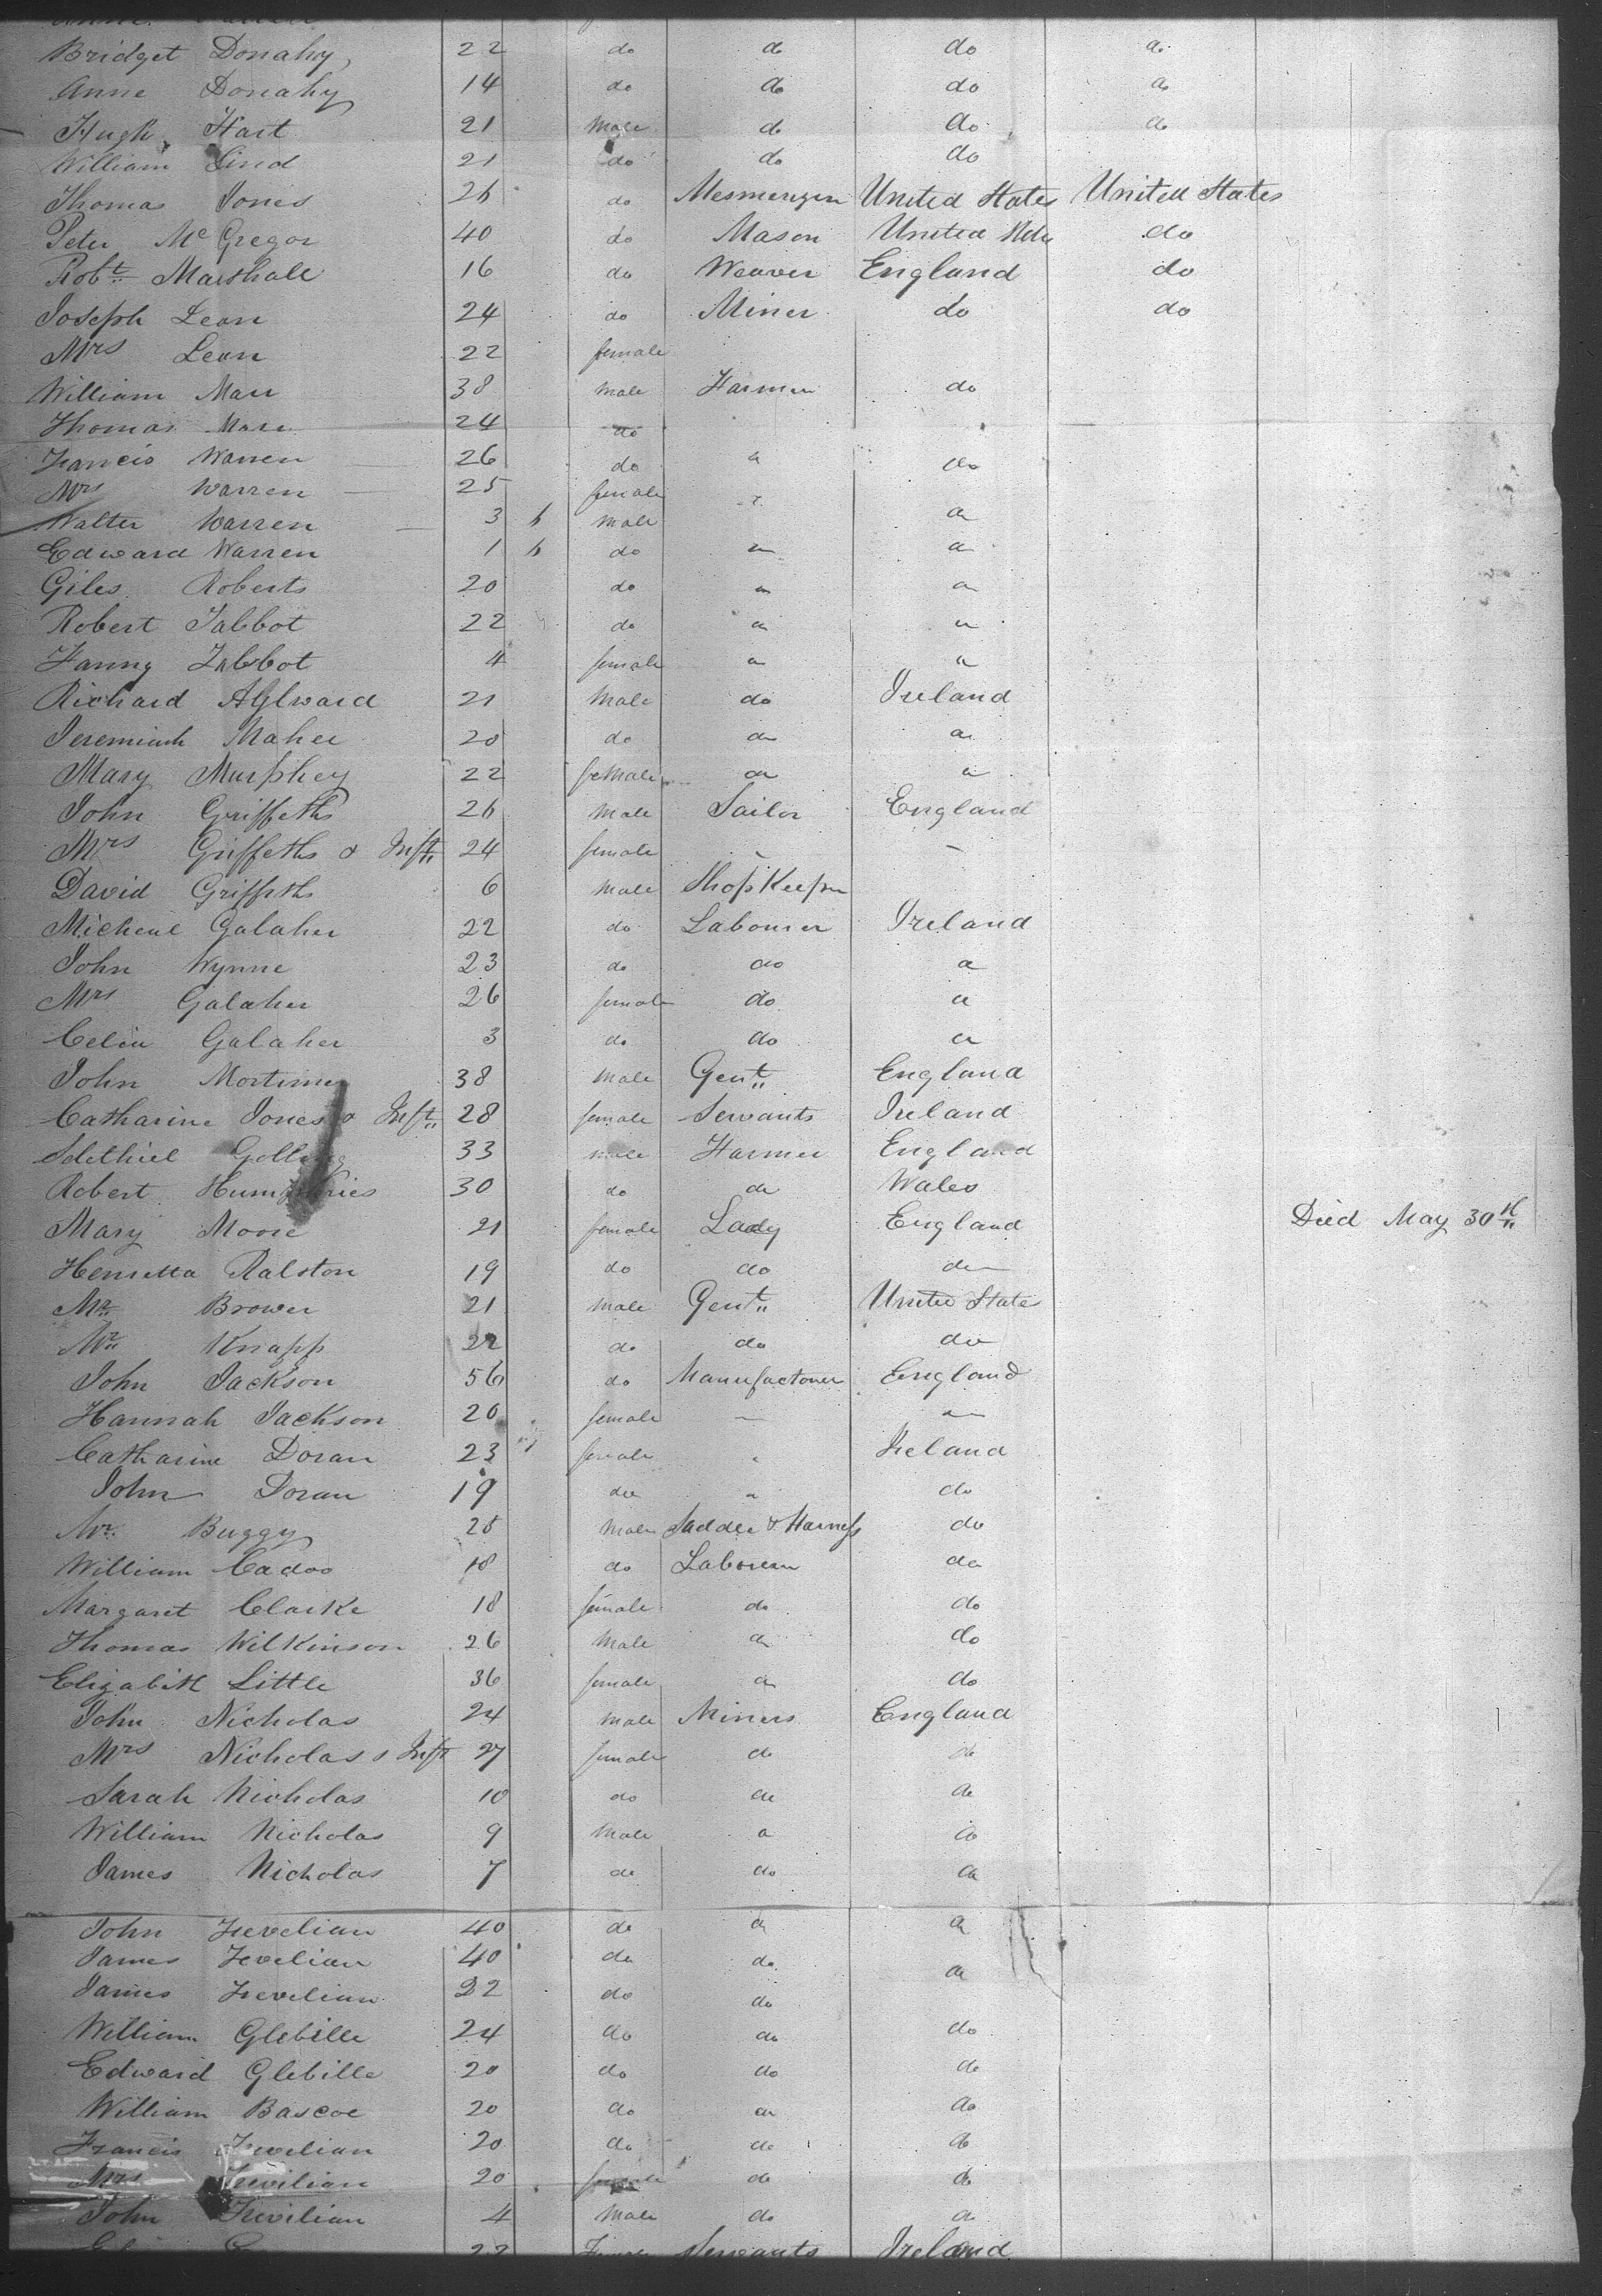 Bridget Donahy 22 do do do do
Anne Donahy 14 do do do do
Hugh Hart 21 Male do do do
William Lind 21 do do do
Thomas Jones 26 do United States United States
Peter McGregor 40 do Mason United do
Robt Marshall 16 do Weaver England do
Joseph Lean 24 do Miner do do
Mrs Lean 22 female
William Marr 38 Male Farmer do
Thomas Marr 24 do
Francis Warren 26 do do
Mrs Warren 25 female
Walter Warren 3 Male
Edward Warren 1 do
Giles Roberts 20 do
Robert Tabbot 22 do
Fanny Tabbot 4 female
Richard Aylward 21 Male do Ireland
Jeremiah Maher 20 do do
Mary Murphey 22 female do
John Griffeths 26 Male Sailor England
Mrs Griffeths & Inft 24 female
David Griffeths 6 Male Shop Keeper
Micheal Galaher 22 do Labourer Ireland
John Wynne 23 do do
Mrs Galaher 26 female do
Celia Galaher 3 do do
John Mortimer 38 Male Gent England
Catharine Jones & Inft 28 female Servants Ireland
33 male Farmer England
Robert Humphries 30 do do Wales
Mary Moore 21 female Lady England Died May 30th
Henretta Ralston 19 do do do
Mr Brower 21 Male Gent United States
Mr Knapp 22 do do do
John Jackson 56 do Manufactorer England
Hannah Jackson 20 female
Catharine Doran 23 female Ireland
John Doran 19 do do
Mr Buggy 25 Male Saddle & Harness do
William Cadoo 18 do do
Margaret Clarke 18 female do do
Thomas Wilkinson 26 Male do
Elizabeth Little 36 female do
John Nicholas 24 Male Miners England
Mrs Nicholas & Inft 27 female do do
Sarah Nicholas 10 do do do
William Nicholas 9 Male do
James Nicholas 7 do do do
John Trevelian 40 do
James Trevelian 40 do do do
James Trevelian 22 do do
William Glebille 24 do do do
Edward Glebille 20 do do do
William Bascoe 20 do do do
Francis Trevelian 20 do do do
Mrs Trevilian 20 female do do
John Trevilian 4 Male do do
22 Servants Ireland